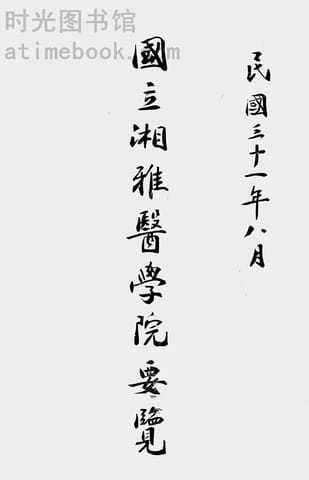 时光图书馆
atimebook.com
民國三十一年八月
國立湘雅醫學院要覽